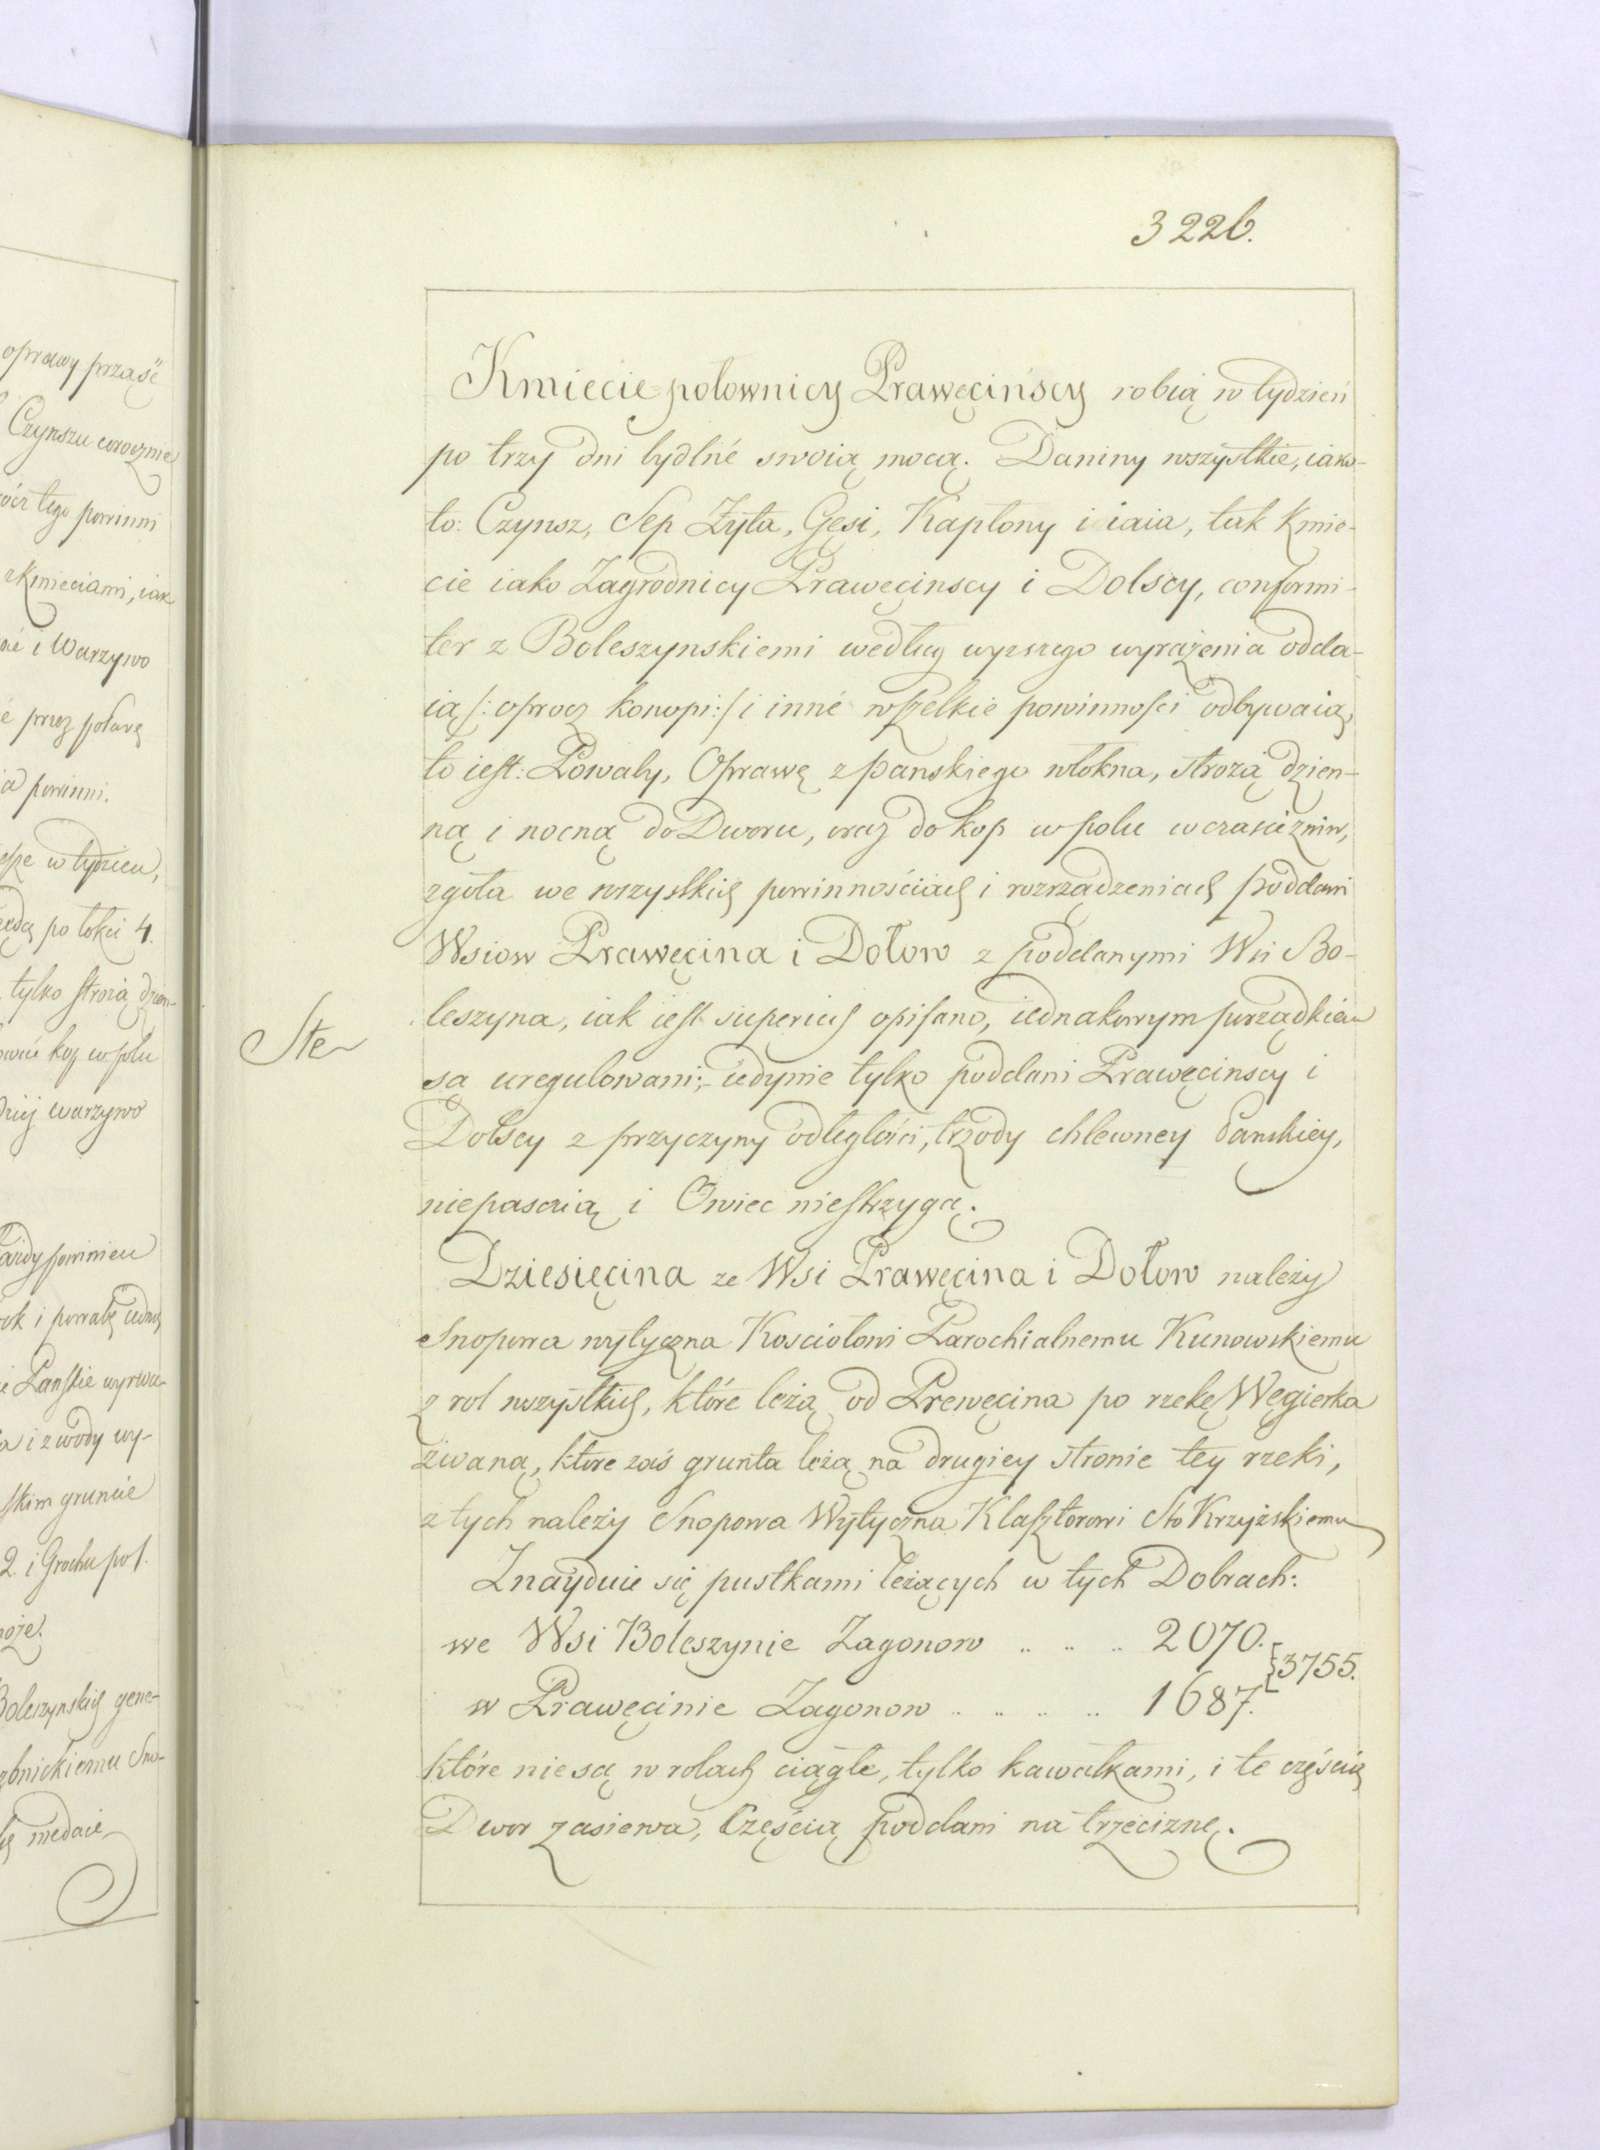 oprawy prząść
Czynszu corocznie
oćz tego powinni
z kmieciami, iak
né i Warzywo
é przez połowę
ia powinni.
w tydzien,
po łokci 4.
tylko strożą dzien-
kop w polu
warzywo
każdy powinien
ok i powabę iedną
ie Panskie wyrwa-
a i z wody wy-
skim gruncie
2. i Grochu pół.
może.
Boleszynskich gene-
Sno-
niedaie
3226.
Kmiecie połownicy Prawęcińscy robią w tydzień
po trzy dni bydlné swoią mocą. Daniny wszystkie, iako-
to: Czynsz, Sep Żyta, Gęsi, Kapłony i iaia, tak Kmie-
cie iako Zagrodnicy Prawęcinscy i Dolscy, conformi-
ter z Boleszynskiemi według wyższego wyrażenia odda-
ią /: oprocz konopi :/ i inné wszelkie powinności odbywaią,
to iest: Powaby, Oprawę z panskiego włokna, strożą dzien-
ną i nocną do Dworu, oraz do kop w polu w czasie żniw,
zgoła we wszystkich powinnościach i rozrządzeniach poddani
Wsiow Prawęcina i Dołow z poddanymi Wsi Bo-
leszyna, iak iest superius opisano, iednakowym porządkiem
Ste
są uregulowani; iedynie tylko poddani Prawęcinscy i
Dolscy z przyczyny odległości, trzody chlewney Panskiéy,
niepasaią i Owiec niestrzygą.
Dziesięcina ze Wsi Prawęcina i Dołow należy
Snopowa wytyczna Kosciołowi Parochialnemu Kunowskiemu
z rol wszystkich, które leżą od Prewęcina po rzekę Węgierka
zwaną, które zaś grunta leżą na drugiey stronie tey rzeki,
z tych należy Snopowa Wytyczna Klasztorowi Sto Krzyżskiemu
Znayduie się pustkami leżących w tych Dobrach:
we Wsi Boleszynie Zagonow .. .. .. 2070.
} 3755.
w Prawęcinie Zagonow .. .. .. .. 1687.
które nie są w rolach ciągłe, tylko kawałkami, i te częścią
Dwor zasiewa, Częścią poddani na trzeciznę.